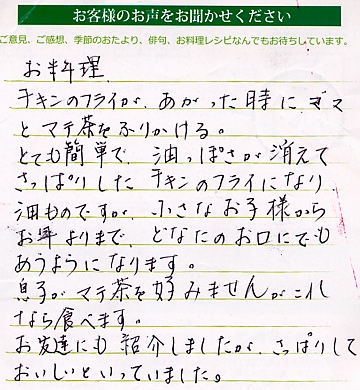 お客様のお声をお聞かせください
ご意見、ご感想、季節のおたより、俳句、お料理レシピなんでもお待ちしています。
お料理
チキンのフライが、あがった時に
とマテ茶をふりかける。
とても簡単で、油っぽさが消えて
さっぱりした チキンのフライになり、
油ものですが、小さなお子様から
お年よりまで、どなたのお口にでも
あうようになります。
息子が マテ茶を好みませんがこれ
なら食べます。
お友達にも 紹介しましたが、さっぱりして
おいしいといっていました。